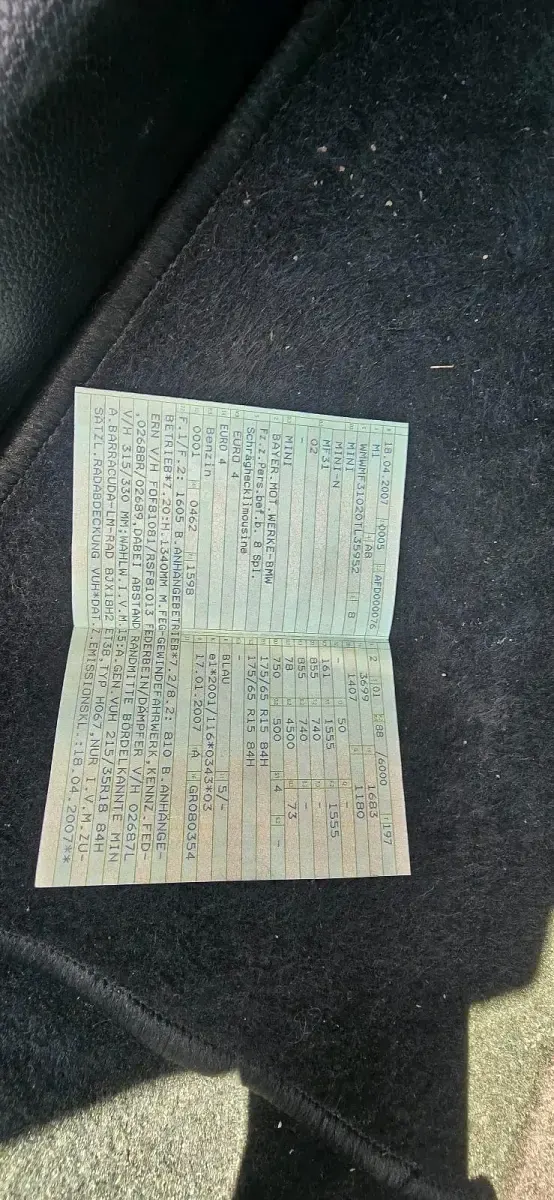 18.04.2007 0005 AFD000076
M1 AB
WMWMF31020TL35952 8
MINI
MINI-N
MF31
02
-
MINI
BAYER.MOT.WERKE-BMW
Fz.z.Pers.bef.b. 8 Spl.
Schräghecklimousine
-
EURO 4
EURO 4
Benzin
0001 0462 1598
2 01 88 /6000 197
3699 1683
1407 1180
- 50 -
161 1555 1555
855 740 -
855 740 -
78 4500 73
750 500 4 -
175/65 R15 84H
175/65 R15 84H
-
BLAU 5/-
e1*2001/116*0343*03
17.01.2007 A GR080354
F.1/F.2: 1605 B.ANHÄNGEBETRIEB*7.2/8.2: 810 B.ANHÄNGE-
BETRIEB*Z.20:H.1340MM M.FEG-GEWINDEFAHRWERK,KENNZ.FED-
ERN V/H FOFB1081/RSFB1013 FEDERBEIN/DÄMPFER V/H 02687L
02688R/02689,DABEI ABSTAND RANDMITTE BÖRDELKANNTE MIN
V/H 315/330 MM;WAHLW.I.V.M.15:A.GEN.VUH 215/35R18 84H
A.BARRACUDA-LM-RAD 8JX18H2 ET38,TYP H067,NUR I.V.M.ZU-
SATZL.RADABDECKUNG VUH*DAT.Z.EMISSIONSKL.:18.04.2007**